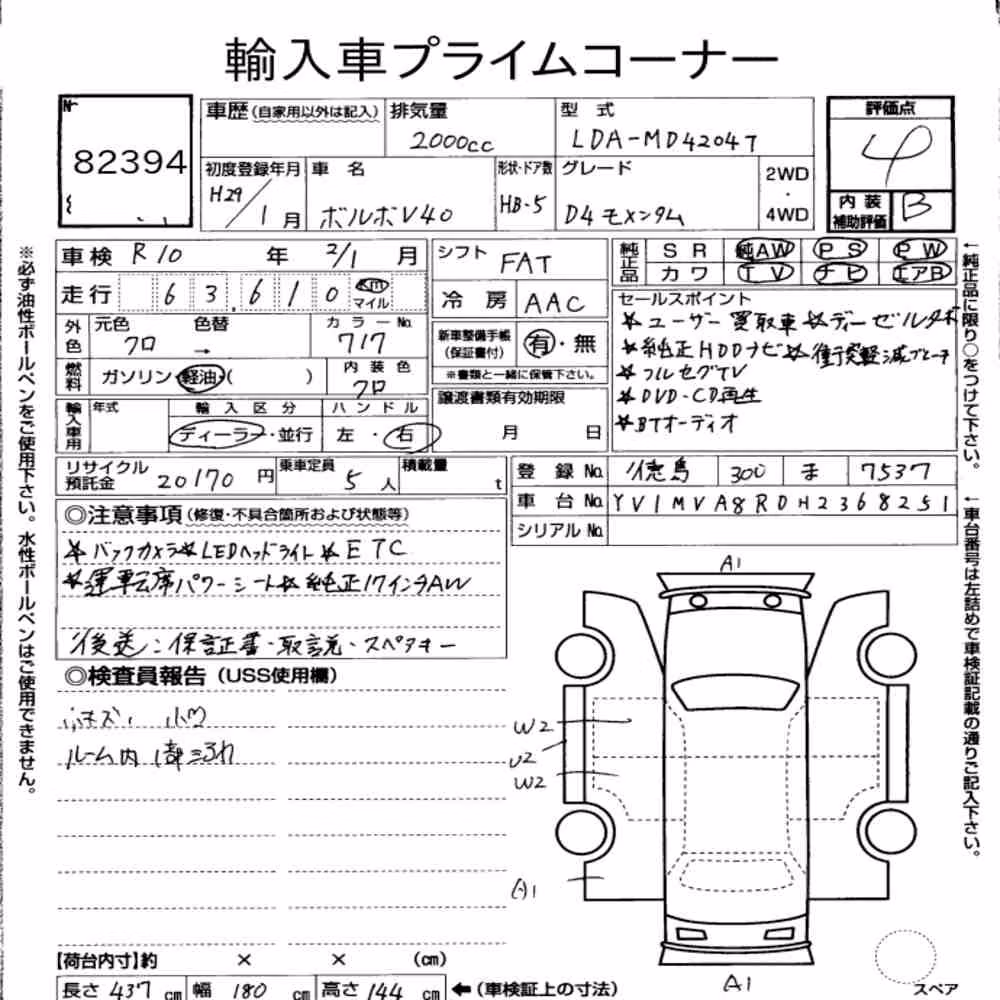 輸入車プライムコーナー
№
82394
車歴(自家用以外は記入)
排気量
2000cc
型 式
LDA-MD4204T
評価点
4
初度登録年月
H29/1月
車 名
ボルボV40
形状・ドア数
HB-5
グレード
D4モメンタム
2WD
・
4WD
内 装
補助評価
B
車検 R10 年 2/1 月
シフト FAT
純正品
S R 純AW P S P W
カ ワ T V ナビ エアB
走行 63,610 km マイル
冷 房 AAC
セールスポイント
★ユーザー買取車★ディーゼルターボ
★純正HDDナビ★衝突軽減ブレーキ
★フルセグTV
★DVD・CD再生
★BTオーディオ
外色
元色 色替
クロ →
カラーNo.
717
新車整備手帳
(保証書付)
有・無
※書類と一緒に保管下さい。
燃料
ガソリン・軽油・( )
内 装 色
クロ
輸入車用
年式
輸 入 区 分
ディーラー・並行
ハ ン ド ル
左 ・ 右
譲渡書類有効期限
月 日
リサイクル
預託金
20170 円
乗車定員
5 人
積載量
t
登 録 No. 徳島 300 ま 7537
車 台 No. YV1MVA8RDH2368251
シリアル No.
◎注意事項(修復・不具合箇所および状態等)
★バックカメラ★LEDヘッドライト★ETC
★運転席パワーシート★純正17インチAW
後送:保証書・取説・スペアキー
◎検査員報告(USS使用欄)
小キズ、凹
ルーム内
A1
W2
U2
W2
A1
A1
スペア
【荷台内寸】約 × × (cm)
長さ 437 cm 幅 180 cm 高さ 144 cm ←(車検証上の寸法)
※必ず油性ボールペンをご使用下さい。水性ボールペンはご使用できません。
←純正品に限り○をつけて下さい。
←車台番号は左詰めで車検証記載の通りご記入下さい。